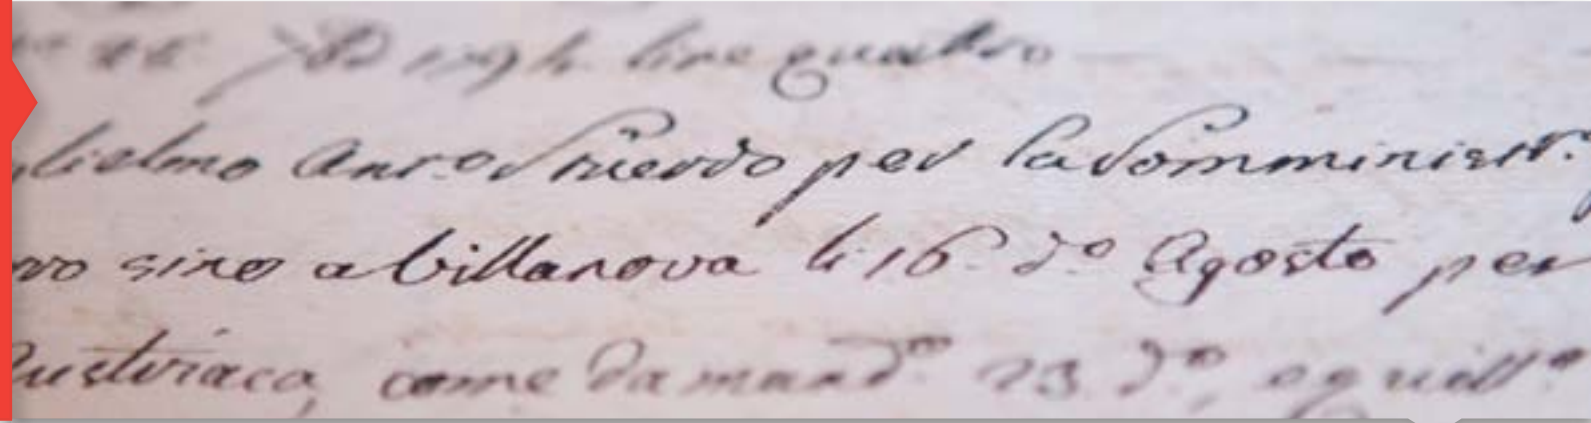 lire quattro
glielmo Ant.o per la somministr.
vo sino a Villanova li 16 d.o Agosto per
Austriaca, come da mand.o 23 d.o, e quitt.o